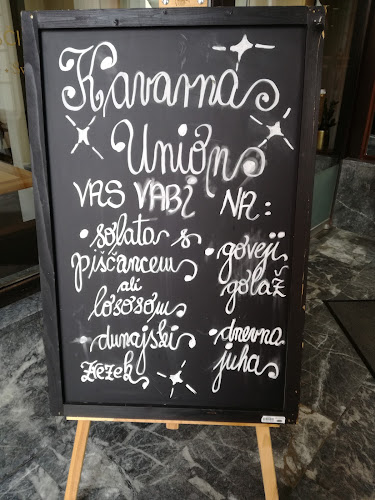 Kavarna
Union
VAS VABI NA:
• solata s
piščancem
ali
lososom
• dunajski
zrezek
• goveji
golaž
• dnevna
juha